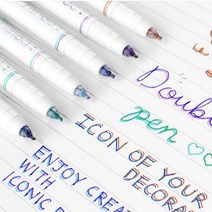 Double
pen
ICON OF YOUR
DECORA
ENJOY CREA
WITH
ICONIC